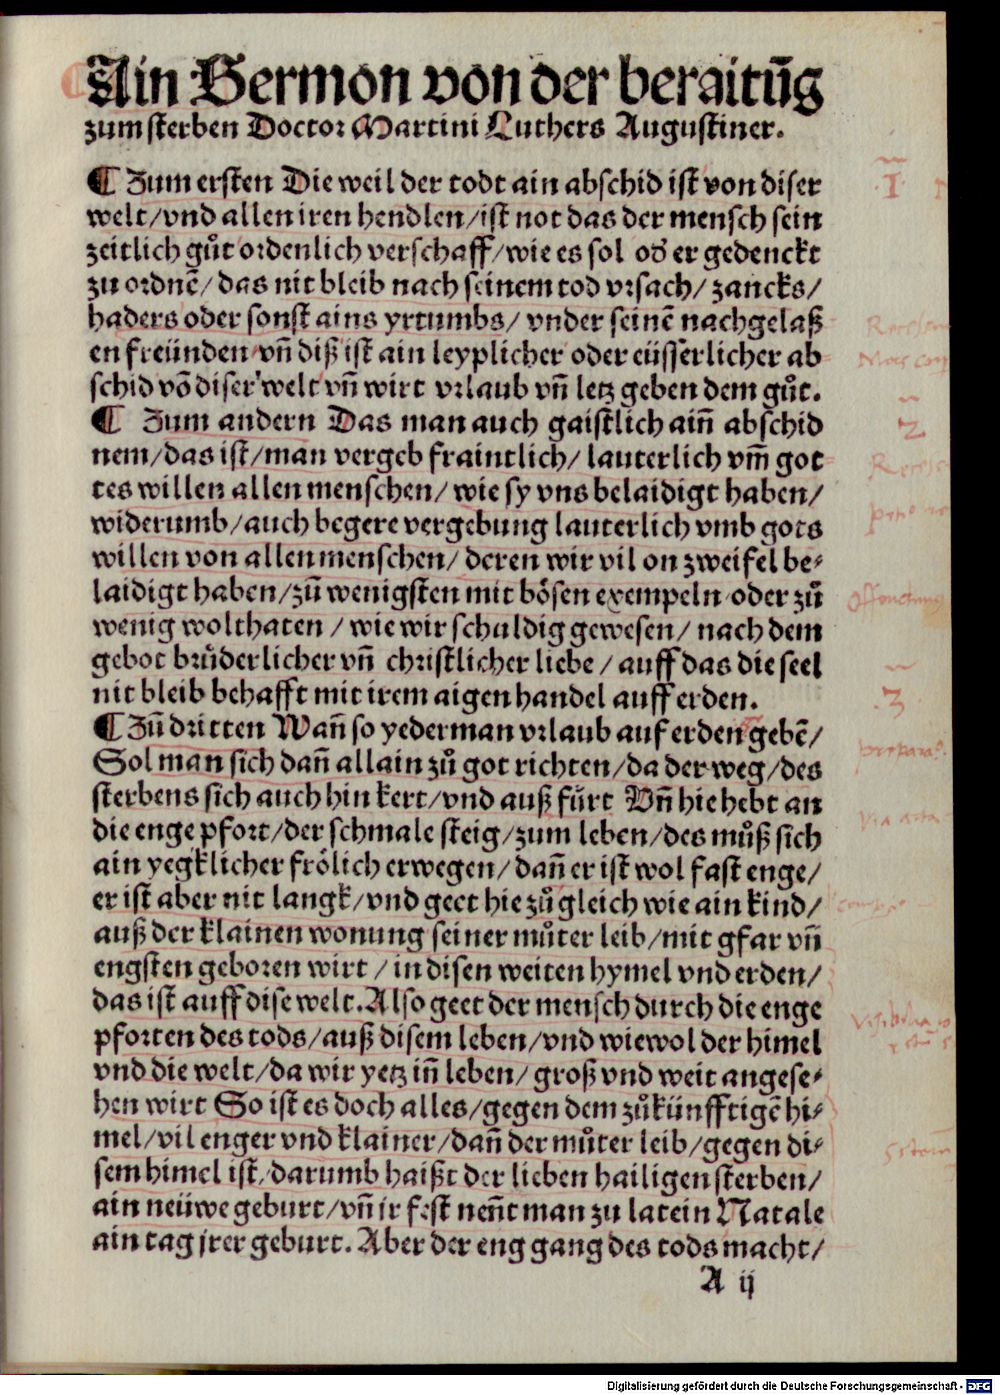 Ain Sermon von der beraitūg
zum sterben Doctor Martini Luthers Augustiner.
¶ Zum ersten Die weil der todt ain abschid ist von diser
welt/vnd allen iren hendlen/ist not das der mensch sein
zeitlich gůt ordenlich verschaff/wie es sol od̄ er gedenckt
zu ordnē/das nit bleib nach seinem tod vrsach/zancks/
haders oder sonst ains yrtumbs/vnder seinē nachgelaß
en freünden vn̄ diß ist ain leyplicher oder eüsserlicher ab
schid vō diser welt vn̄ wirt vrlaub vn̄ letz geben dem gůt.
¶ Zum andern Das man auch gaistlich ain̄ abschid
nem/das ist/man vergeb fraintlich/lauterlich vm̄ got
tes willen allen menschen/wie sy vns belaidigt haben/
widerumb/auch begere vergebung lauterlich vmb gots
willen von allen menschen/deren wir vil on zweifel be⸗
laidigt haben/zů wenigsten mit bösen exempeln oder zů
wenig wolthaten/wie wir schuldig gewesen/nach dem
gebot brůderlicher vn̄ christlicher liebe/auff das die seel
nit bleib behafft mit irem aigen handel auff erden.
¶ Zū dritten Wan̄ so yederman vrlaub auf erden gebē/
Sol man sich dan̄ allain zů got richten/da der weg/des
sterbens sich auch hin kert/vnd auß fürt Vn̄ hie hebt an
die enge pfort/der schmale steig/zum leben/des můß sich
ain yegklicher frölich erwegen/dan̄ er ist wol fast enge/
er ist aber nit langk/vnd geet hie zů gleich wie ain kind/
auß der klainen wonung seiner můter leib/mit gfar vn̄
engsten geboren wirt/in disen weiten hymel vnd erden/
das ist auff dise welt. Also geet der mensch durch die enge
pforten des tods/auß disem leben/vnd wiewol der himel
vnd die welt/da wir yetz in̄ leben/groß vnd weit angese⸗
hen wirt So ist es doch alles/gegen dem zůkünfftigē hi⸗
mel/vil enger vnd klainer/dan̄ der můter leib/gegen di⸗
sem himel ist/darumb haißt der lieben hailigen sterben/
ain neüwe geburt/vn̄ jr fest nen̄t man zu latein Natale
ain tag jrer geburt. Aber der eng gang des tods macht/
A ij
.1.
2
.3.
Digitalisierung gefördert durch die Deutsche Forschungsgemeinschaft - DFG